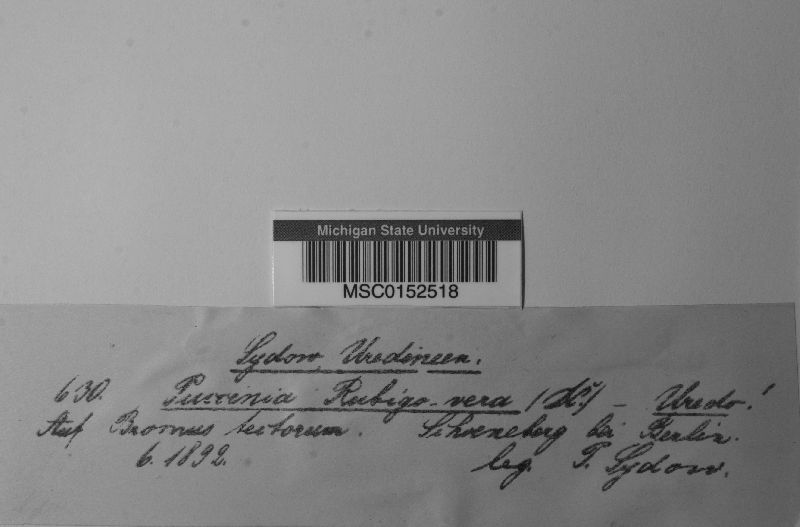 Michigan State University
MSC0152518
Sydow, Uredineen.
630. Puccinia Rubigo-vera (DC.) – Uredo!
Auf Bromus tectorum. Schoeneberg bei Berlin.
6. 1892. leg. P. Sydow.